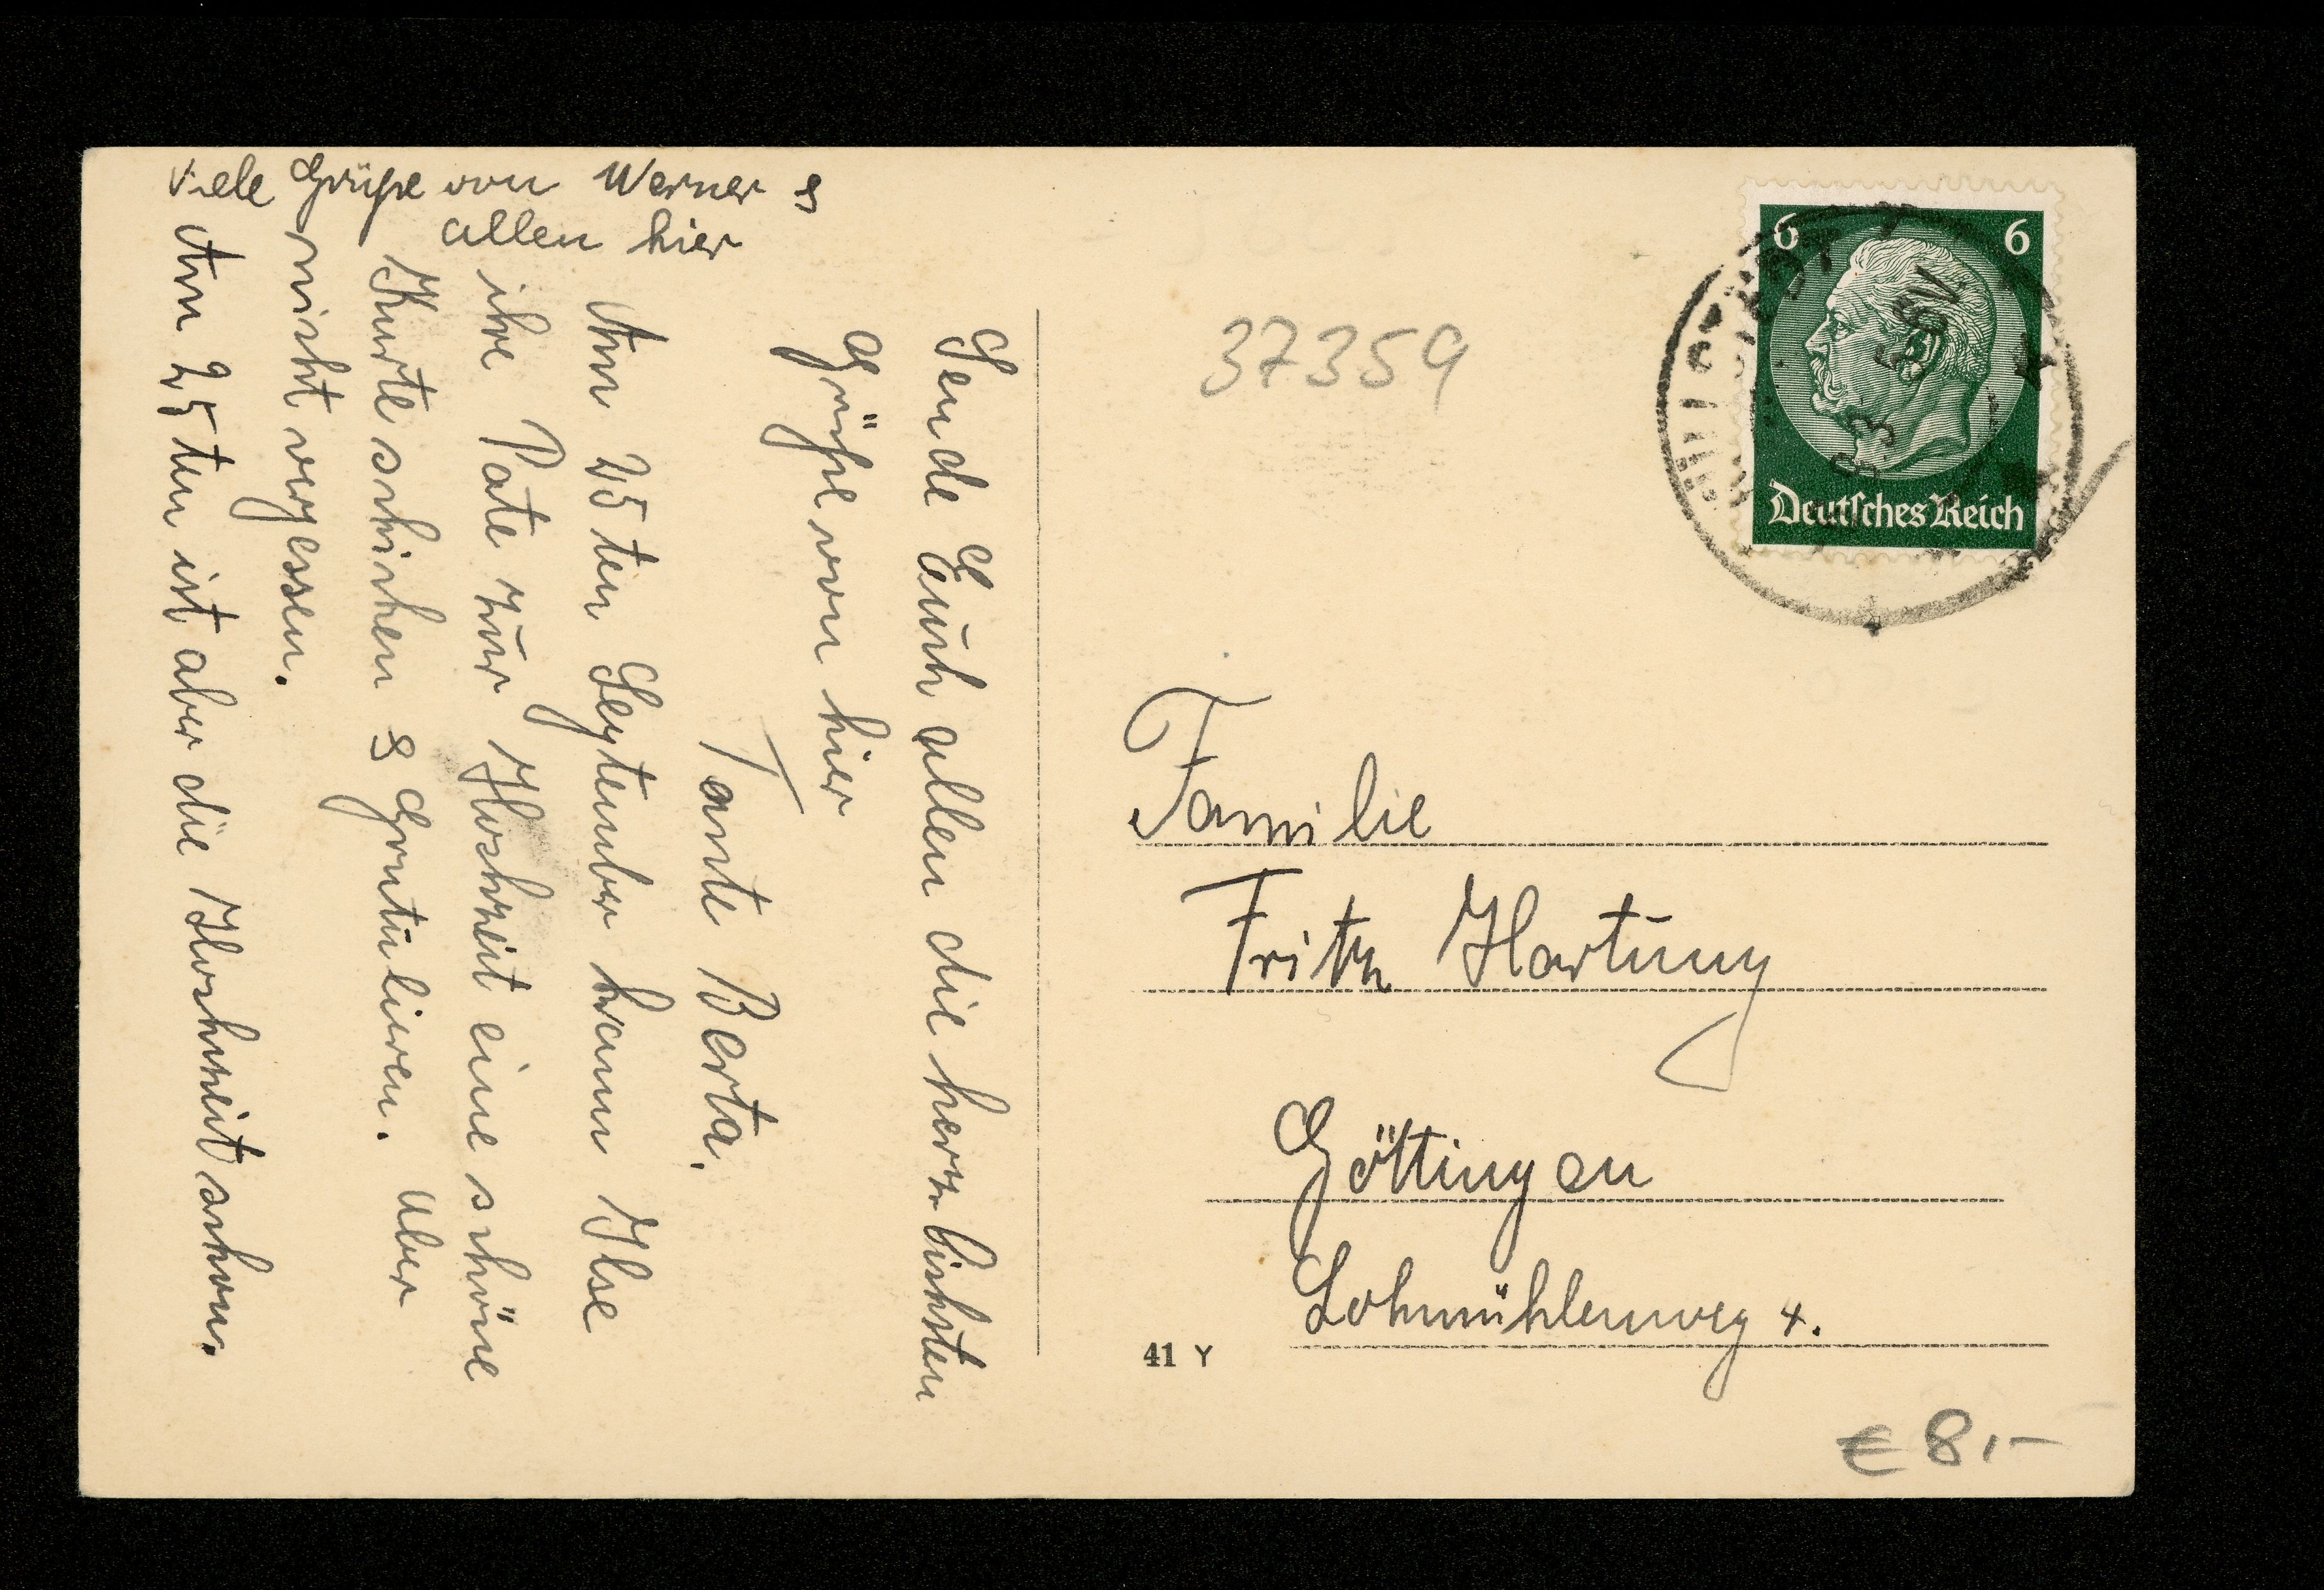 Sende Euch allen die herzlichsten
Grüße von hier
Tante Berta.
Am 25 ten September kann Ilse
ihre Pate zur Hochzeit eine schöne
Karte schicken & Gratulieren. Aber
nicht vergessen.
Am 25 ten ist aber die Hochzeit schon.
Viele Grüße von Werner &
allen hier
37359
6 6
Deutsches Reich
Familie
Fritz Hartung
Göttingen
Lohmühlenweg 4.
41 Y
€ 8,-